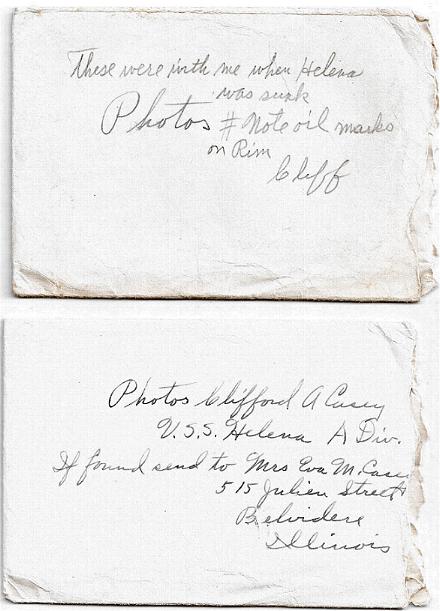 These were with me when Helena
was sunk
Photos # Note oil marks
on Rim
Cliff
Photos Clifford A Casey
U.S.S. Helena A Div.
If found send to Mrs Eva M. Casey
515 Julien Street
Belvidere
Illinois